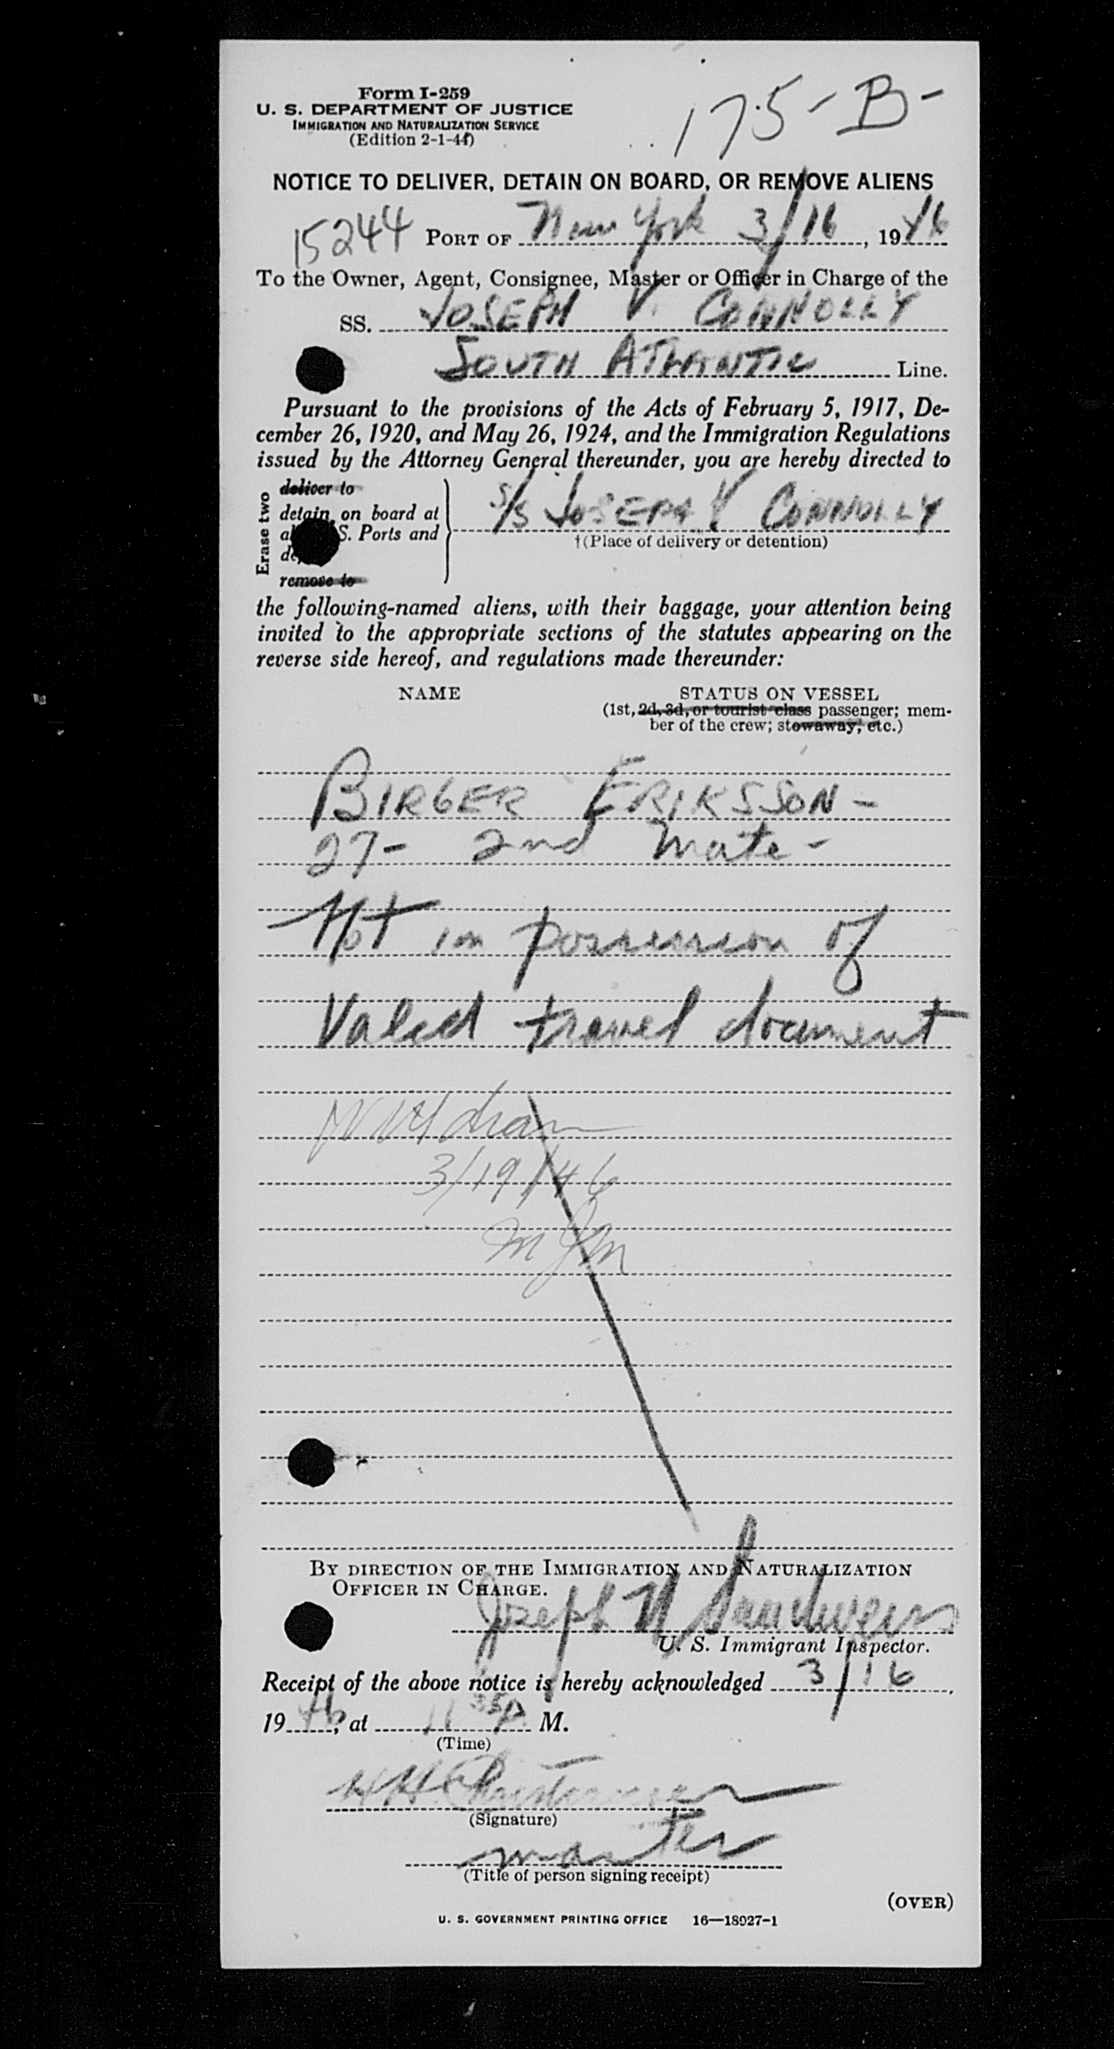 Form I-259
U. S. DEPARTMENT OF JUSTICE
IMMIGRATION AND NATURALIZATION SERVICE
(Edition 2-1-44)
175-B-
NOTICE TO DELIVER, DETAIN ON BOARD, OR REMOVE ALIENS
15244 PORT OF New York 3/16, 1946
To the Owner, Agent, Consignee, Master or Officer in Charge of the
SS. JOSEPH V. CONNOLLY
SOUTH ATLANTIC Line.
Pursuant to the provisions of the Acts of February 5, 1917, De-
cember 26, 1920, and May 26, 1924, and the Immigration Regulations
issued by the Attorney General thereunder, you are hereby directed to
Erase two
deliver to
detain on board at
S. Ports and
remove to
S/S JOSEPH V CONNOLLY
†(Place of delivery or detention)
the following-named aliens, with their baggage, your attention being
invited to the appropriate sections of the statutes appearing on the
reverse side hereof, and regulations made thereunder:
NAME STATUS ON VESSEL
(1st, 2d, 3d, or tourist class passenger; mem-
ber of the crew; stowaway, etc.)
BIRGER ERIKSSON-
27- 2nd Mate-
Not in possession of
Valid travel document
3/19/46
MJM
BY DIRECTION OF THE IMMIGRATION AND NATURALIZATION
OFFICER IN CHARGE.
Joseph N Sandweiss
U. S. Immigrant Inspector.
Receipt of the above notice is hereby acknowledged 3/16,
1946, at 11 35P M.
(Time)
(Signature)
master
(Title of person signing receipt)
(OVER)
U. S. GOVERNMENT PRINTING OFFICE 16—18927-1